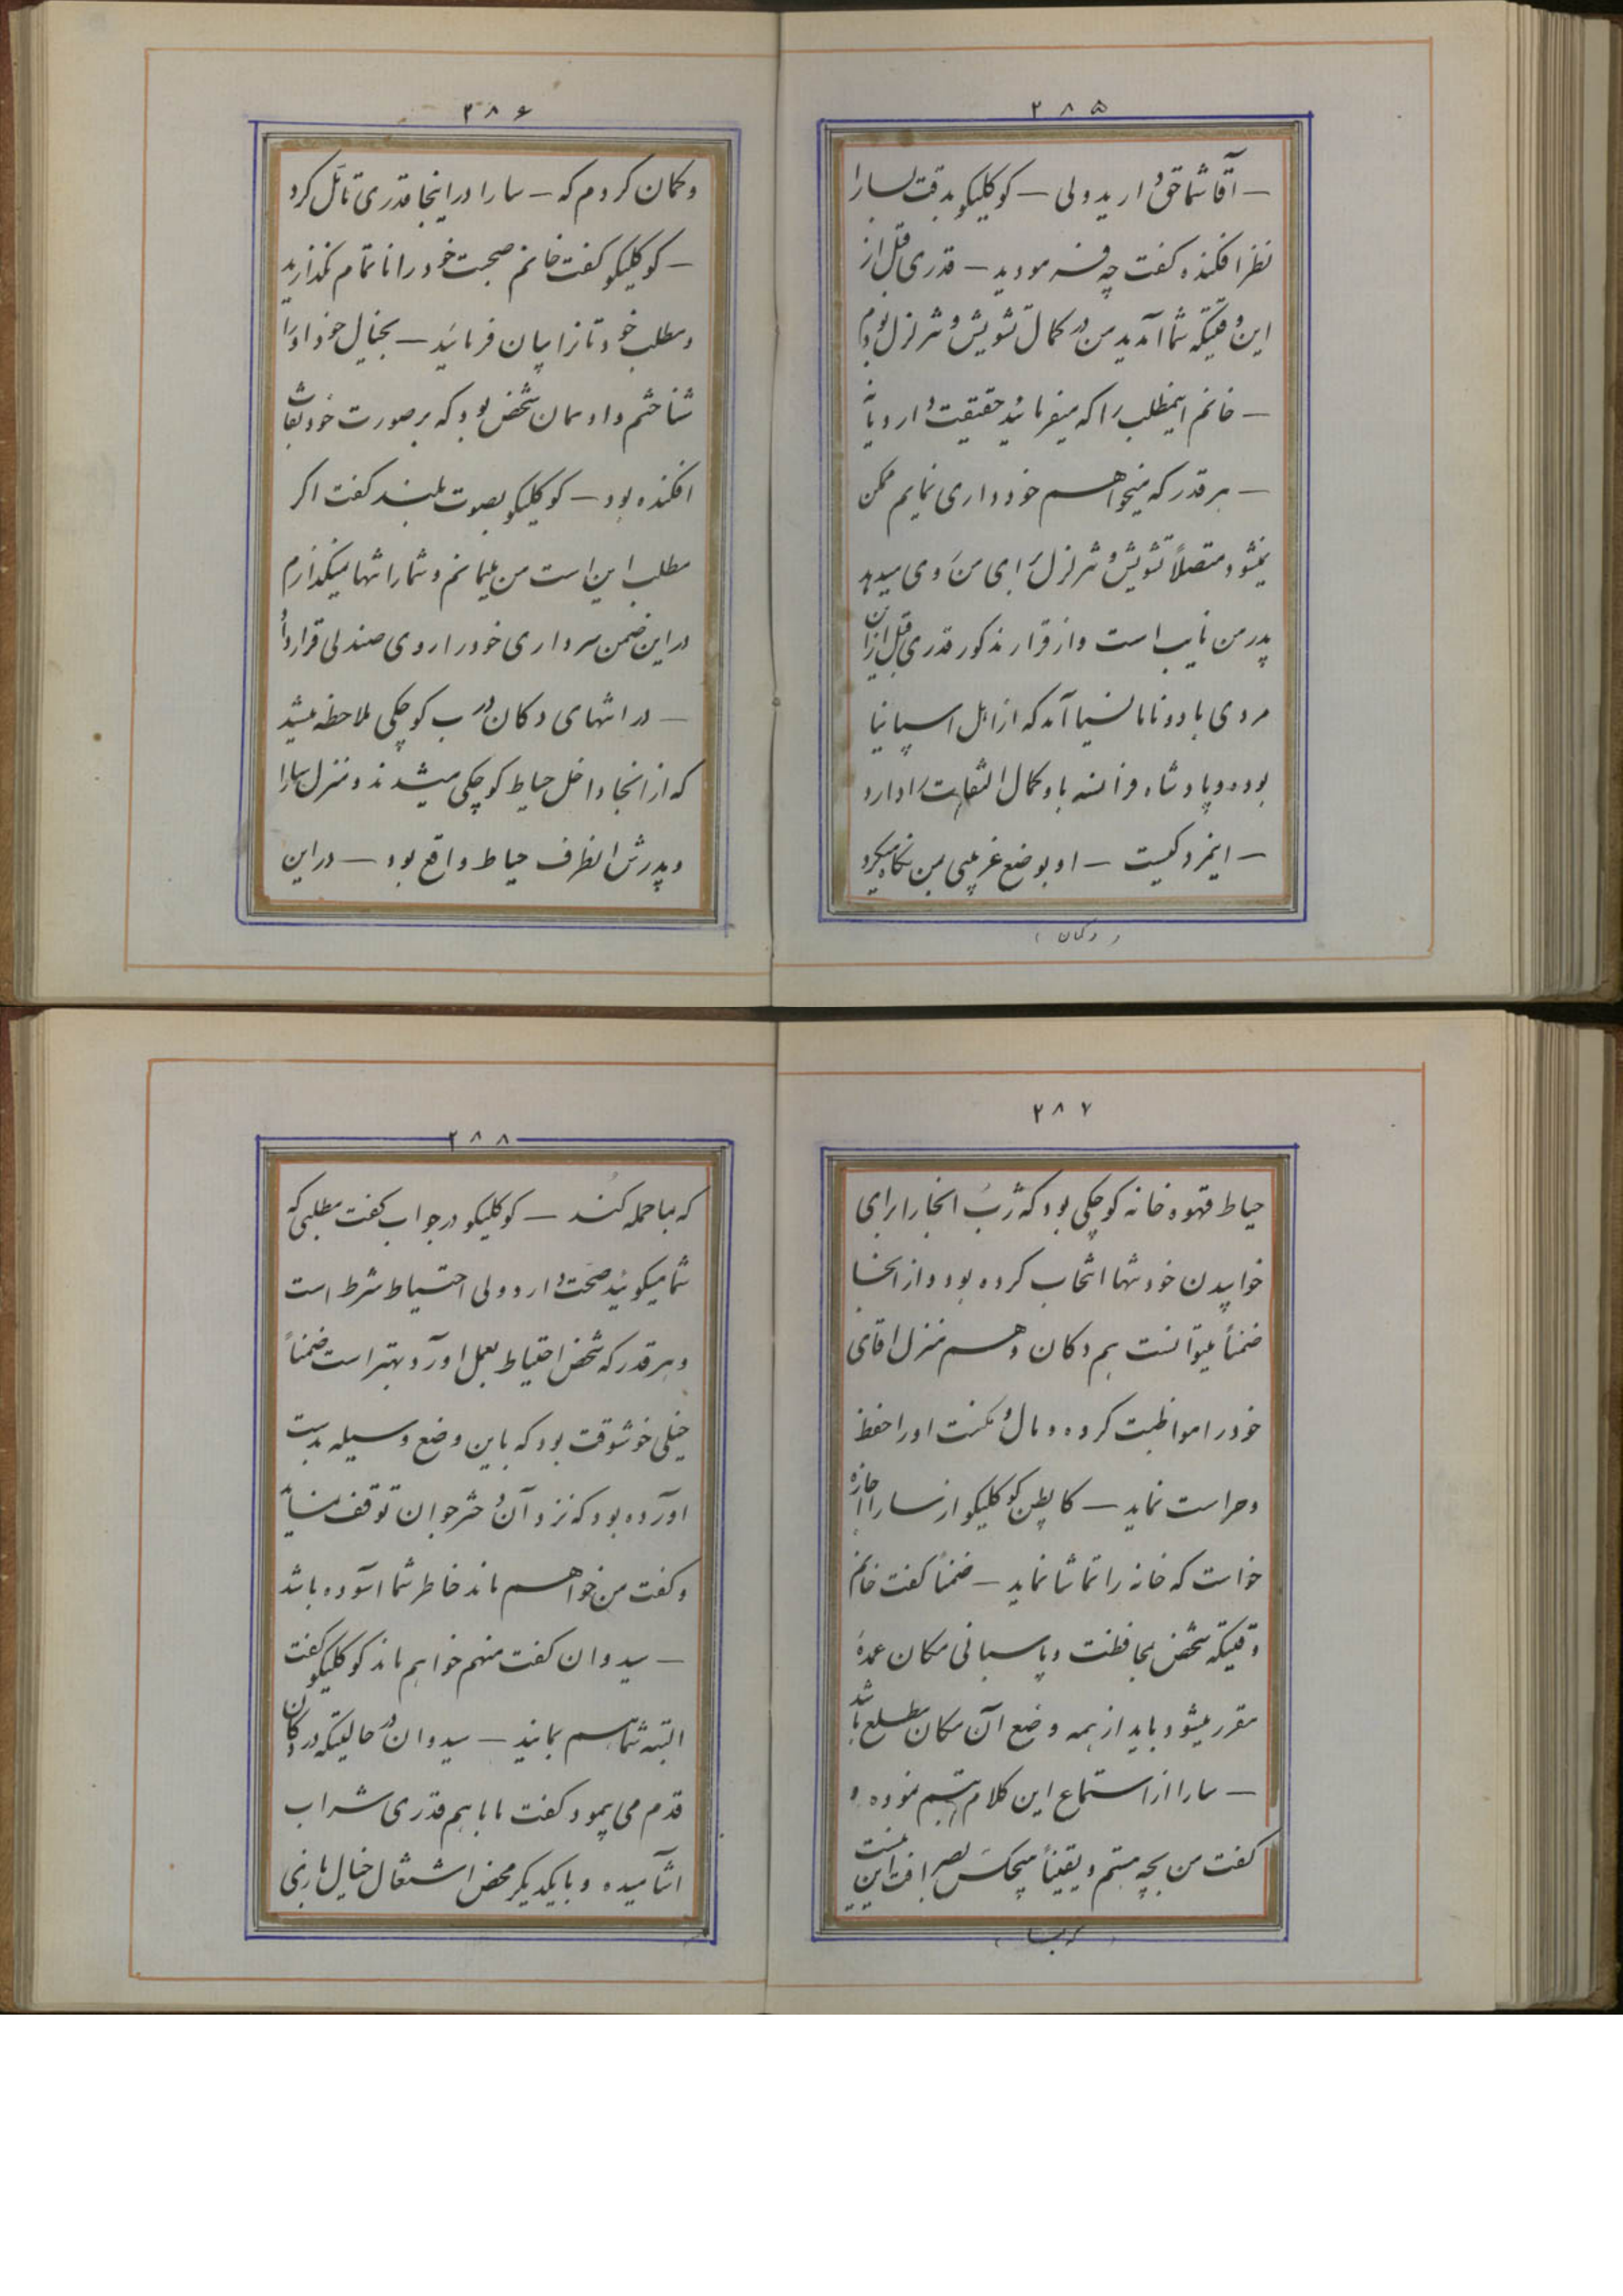 ۲۸۵
— آقا شما حق دارید ولی — کوکلیکو بدقت بسارا
نظر افکنده گفت چه فرمودید — قدری قبل از
این وقتیکه شما آمدید من در کمال تشویش و تزلزل بودم
— خانم اینمطلب را که میفرمائید حقیقت دارد یا نه
— هر قدر که میخواهم خودداری نمایم ممکن
نمیشود متصلاً تشویش و تزلزل برای من روی میدهد
پدر من نایب است و از قرار مذکور قدری قبل از آن
مردی با دونا مانسیا آمد که از اهل اسپانیا
بوده و پادشاه فرانسه باو کمال التفات را دارد
— اینمرد کیست — او بوضع غریبی بمن نگاه میکرد
( و گمان )
۲۸۶
و گمان کردم که — سارا در اینجا قدری تأمل کرد
— کوکلیکو گفت خانم صحبت خود را ناتمام نگذارید
و مطلب خودتانرا بیان فرمائید — بخیال خود او را
شناختم و او همان شخص بود که بر صورت خود نقاب
افکنده بود — کوکلیکو بصوت بلند گفت اگر
مطلب این است من میمانم و شما را تنها نمیگذارم
در این ضمن سرداری خود را روی صندلی قرار داد
— در انتهای دکان درب کوچکی ملاحظه میشد
که از انجا داخل حیاط کوچکی میشدند و منزل سارا
و پدرش انطرف حیاط واقع بود — در این
۲۸۷
حیاط قهوه خانه کوچکی بود که ژرب انجا را برای
خوابیدن خود تنها انتخاب کرده بود و از انجا
ضمناً میتوانست هم دکان و هم منزل اقای
خود را مواظبت کرده و مال و مکنت او را حفظ
و حراست نماید — کاپطن کوکلیکو از سارا اجازه
خواست که خانه را تماشا نماید — ضمناً گفت خانم
وقتیکه شخص بمحافظت و پاسبانی مکان عمدهٔ
مقرر میشود باید از همه وضع آن مکان مطلع باشد
— سارا از استماع این کلام تبسم نموده و
گفت من بچه هستم و یقیناً هیچکس بصرافت این نیست
۲۸۸
که بما حمله کند — کوکلیکو در جواب گفت مطلبی که
شما میگوئید صحت دارد ولی احتیاط شرط است
و هر قدر که شخص احتیاط بعمل اورد بهتر است ضمناً
خیلی خوشوقت بود که باین وضع وسیله بدست
اورده بود که نزد آن دختر جوان توقف نماید
و گفت من خواهم ماند خاطر شما آسوده باشد
— سیدوان گفت منهم خواهم ماند کوکلیکو گفت
البته شما هم بمانید — سیدوان در حالیتکه در دکان
قدم می پیمود گفت ما با هم قدری شراب
اشامیده و با یکدیگر محض اشتغال خیال بازی